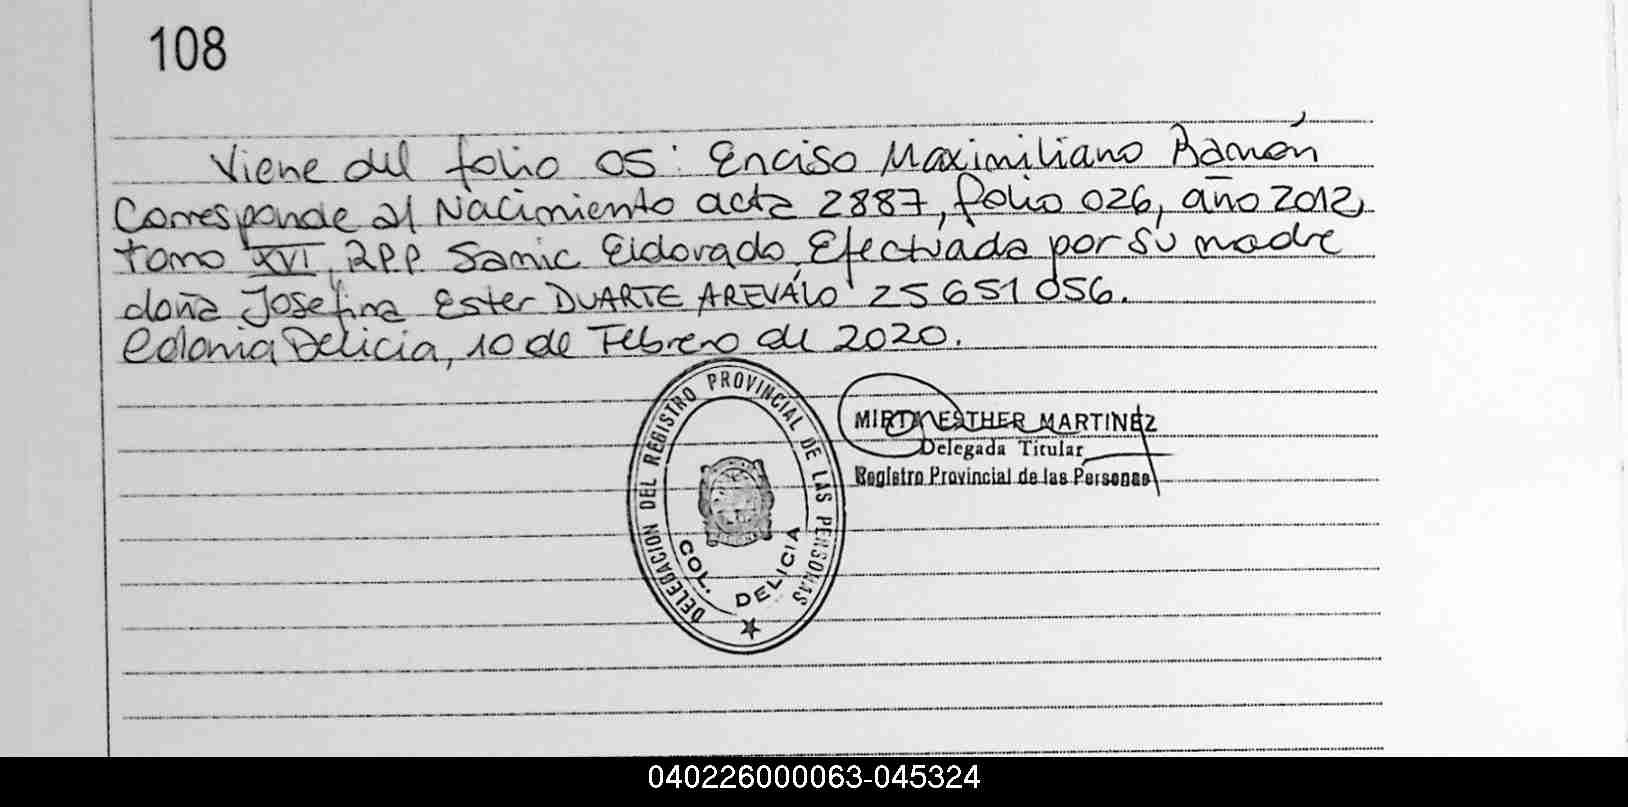 108
Viene del folio 05: Enciso Maximiliano Ramón
Corresponde al Nacimiento acta 2887, folio 026, año 2012,
tomo XVI, RPP. Samic Eldorado, Efectuada por su madre
doña Josefina Ester DUARTE AREVÁLO 25651056.
Colonia Delicia, 10 de Febrero de 2020.
DELEGACION DEL REGISTRO PROVINCIAL DE LAS PERSONAS
COL. DELICIA
MIRTA ESTHER MARTINEZ
Delegada Titular
Registro Provincial de las Personas
040226000063-045324